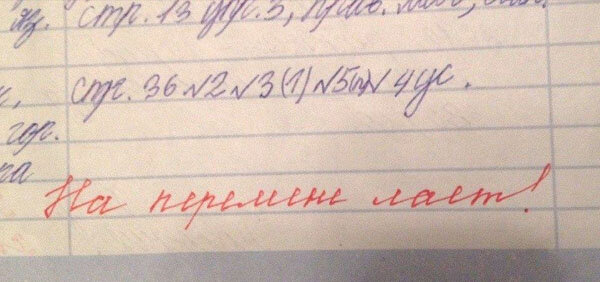 яз. стр. 13 упр. 3,
стр. 36 №2 №3(1) №5 №4 ус.
гор.
На перемене лает!